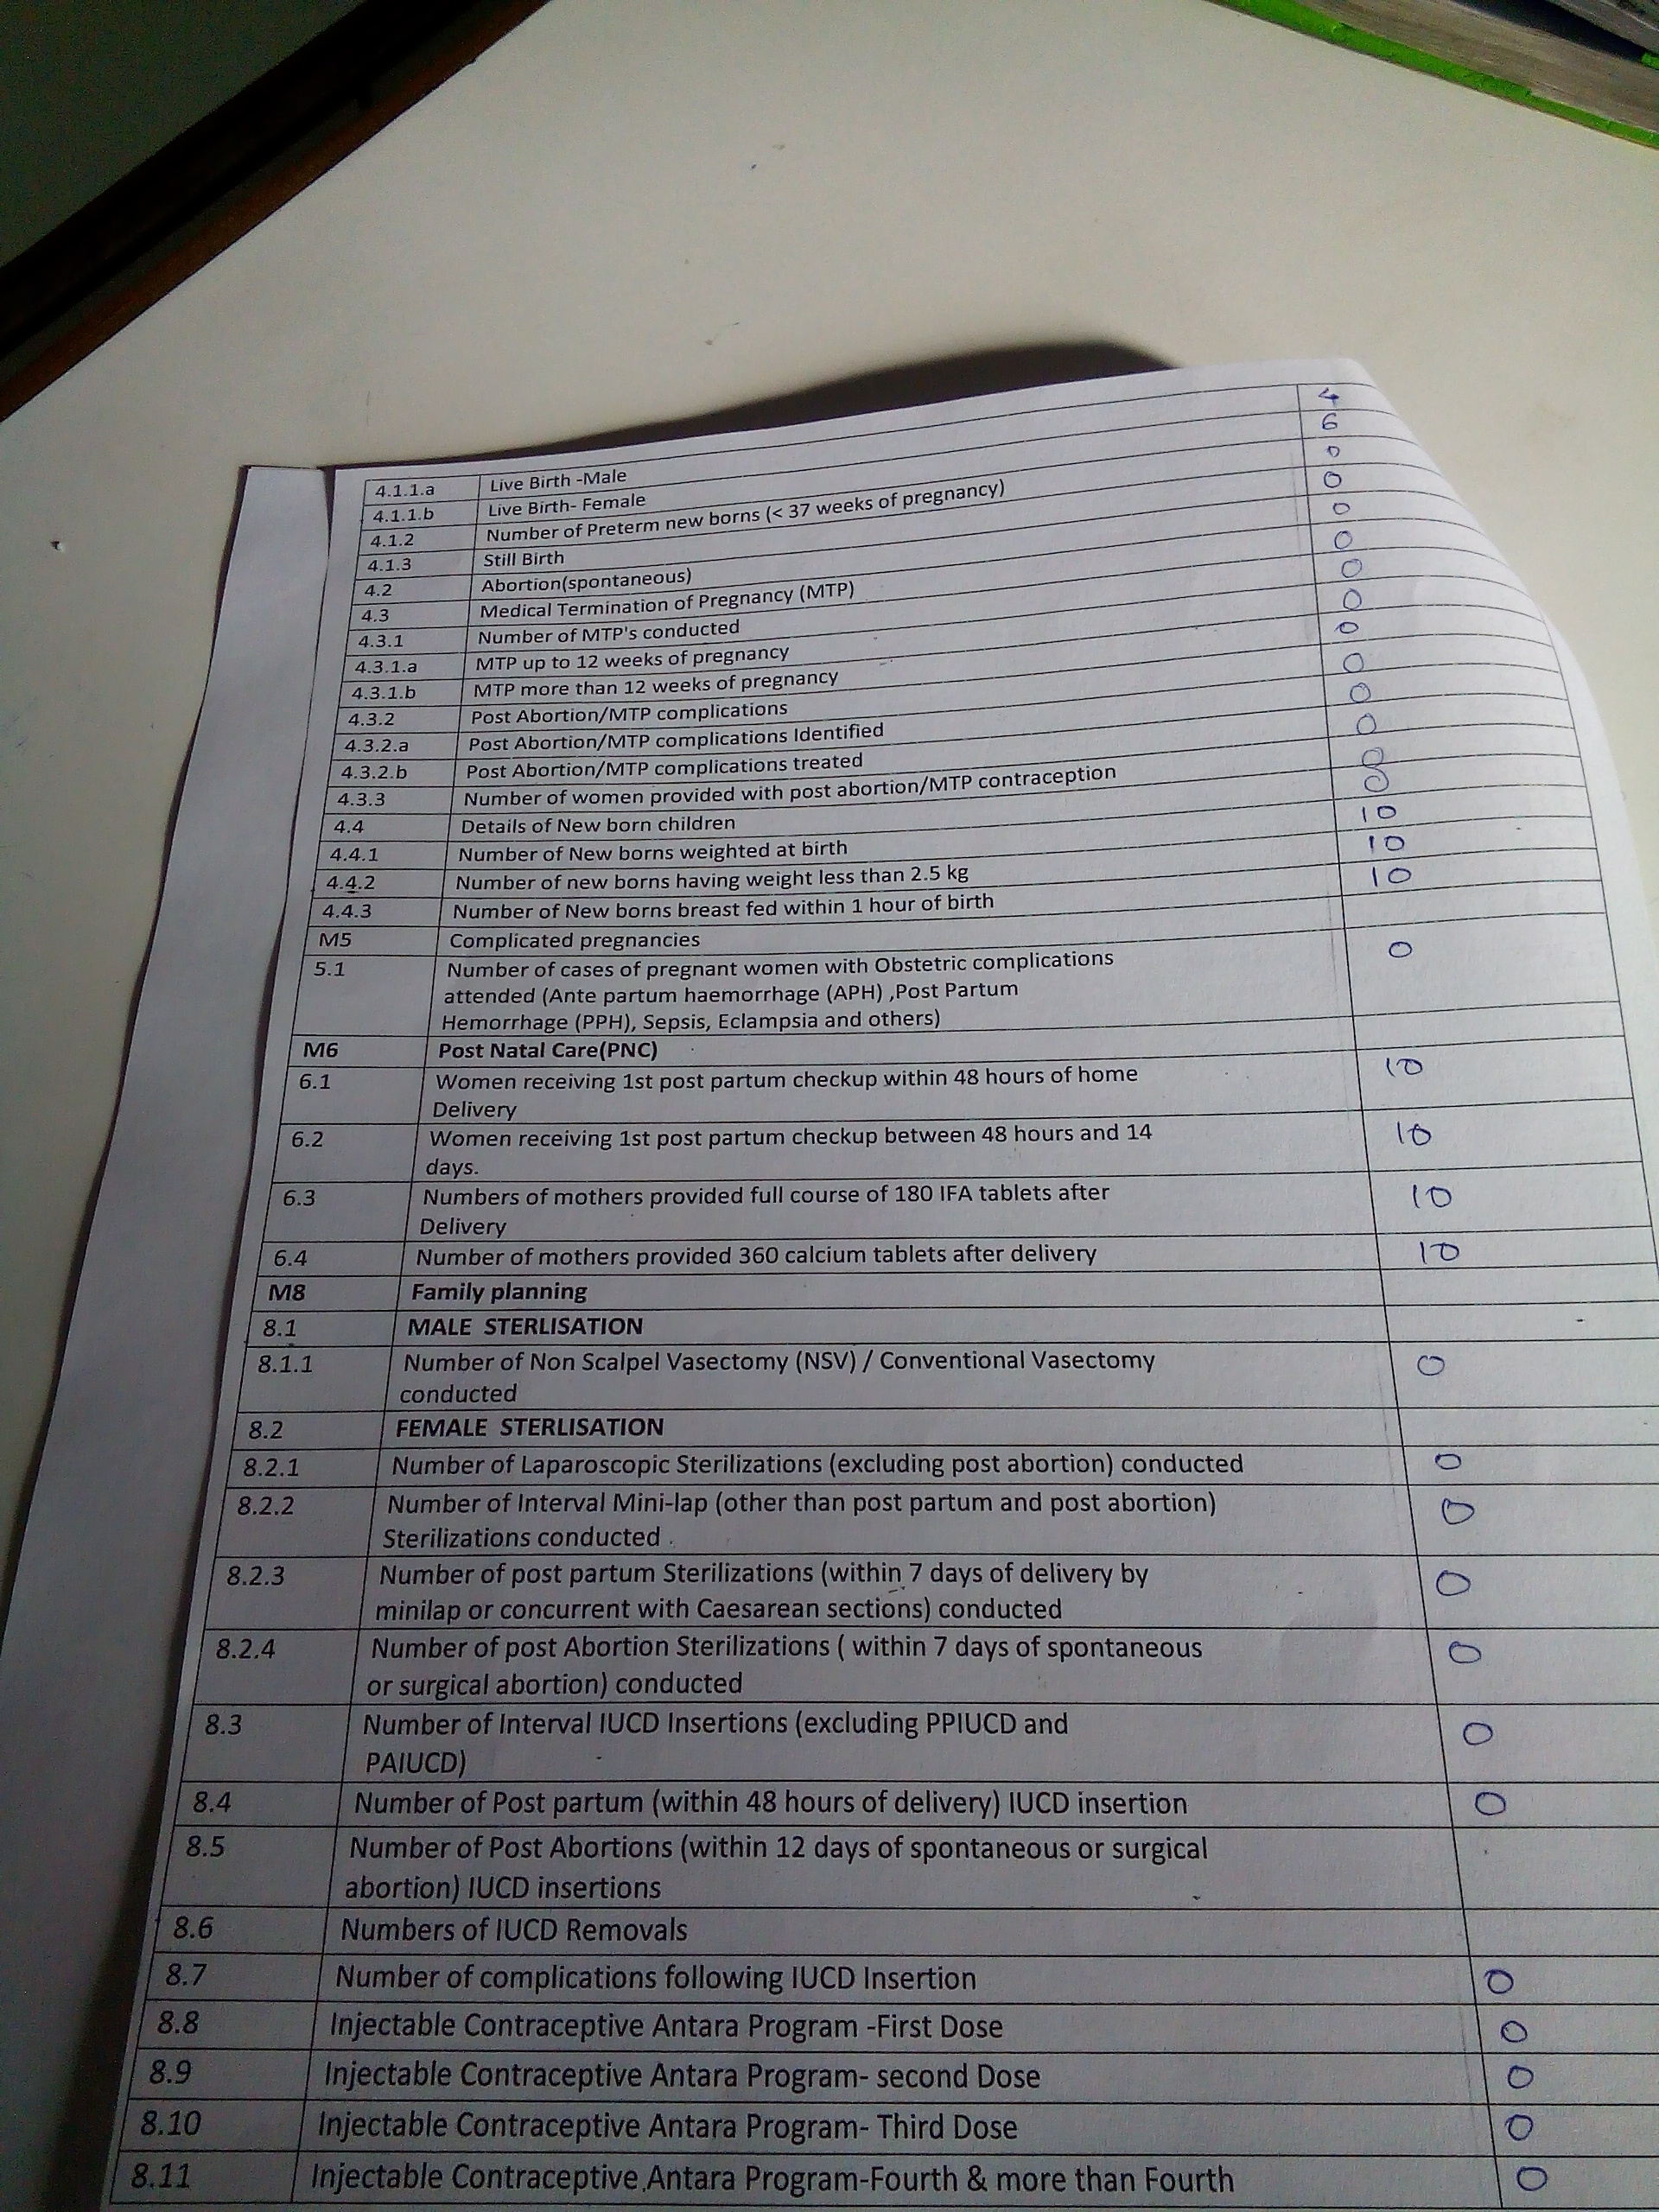 4.1.1.a Live Birth -Male 4
4.1.1.b Live Birth- Female 6
4.1.2 Number of Preterm new borns (< 37 weeks of pregnancy) 0
4.1.3 Still Birth 0
4.2 Abortion(spontaneous) 0
4.3 Medical Termination of Pregnancy (MTP) 0
4.3.1 Number of MTP's conducted 0
4.3.1.a MTP up to 12 weeks of pregnancy 0
4.3.1.b MTP more than 12 weeks of pregnancy 0
4.3.2 Post Abortion/MTP complications 0
4.3.2.a Post Abortion/MTP complications Identified 0
4.3.2.b Post Abortion/MTP complications treated 0
4.3.3 Number of women provided with post abortion/MTP contraception 0
4.4 Details of New born children 0
4.4.1 Number of New borns weighted at birth 10
4.4.2 Number of new borns having weight less than 2.5 kg 10
4.4.3 Number of New borns breast fed within 1 hour of birth 10
M5 Complicated pregnancies
5.1 Number of cases of pregnant women with Obstetric complications 0
attended (Ante partum haemorrhage (APH) ,Post Partum
Hemorrhage (PPH), Sepsis, Eclampsia and others)
M6 Post Natal Care(PNC)
6.1 Women receiving 1st post partum checkup within 48 hours of home 10
Delivery
6.2 Women receiving 1st post partum checkup between 48 hours and 14 10
days.
6.3 Numbers of mothers provided full course of 180 IFA tablets after 10
Delivery
6.4 Number of mothers provided 360 calcium tablets after delivery 10
M8 Family planning
8.1 MALE STERLISATION
8.1.1 Number of Non Scalpel Vasectomy (NSV) / Conventional Vasectomy 0
conducted
8.2 FEMALE STERLISATION
8.2.1 Number of Laparoscopic Sterilizations (excluding post abortion) conducted 0
8.2.2 Number of Interval Mini-lap (other than post partum and post abortion) 0
Sterilizations conducted .
8.2.3 Number of post partum Sterilizations (within 7 days of delivery by 0
minilap or concurrent with Caesarean sections) conducted
8.2.4 Number of post Abortion Sterilizations ( within 7 days of spontaneous 0
or surgical abortion) conducted
8.3 Number of Interval IUCD Insertions (excluding PPIUCD and 0
PAIUCD)
8.4 Number of Post partum (within 48 hours of delivery) IUCD insertion 0
8.5 Number of Post Abortions (within 12 days of spontaneous or surgical
abortion) IUCD insertions
8.6 Numbers of IUCD Removals
8.7 Number of complications following IUCD Insertion 0
8.8 Injectable Contraceptive Antara Program -First Dose 0
8.9 Injectable Contraceptive Antara Program- second Dose 0
8.10 Injectable Contraceptive Antara Program- Third Dose 0
8.11 Injectable Contraceptive Antara Program-Fourth & more than Fourth 0